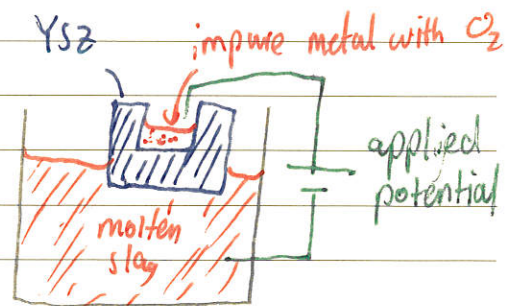 YSZ
impure metal with O₂
applied
potential
molten
slag